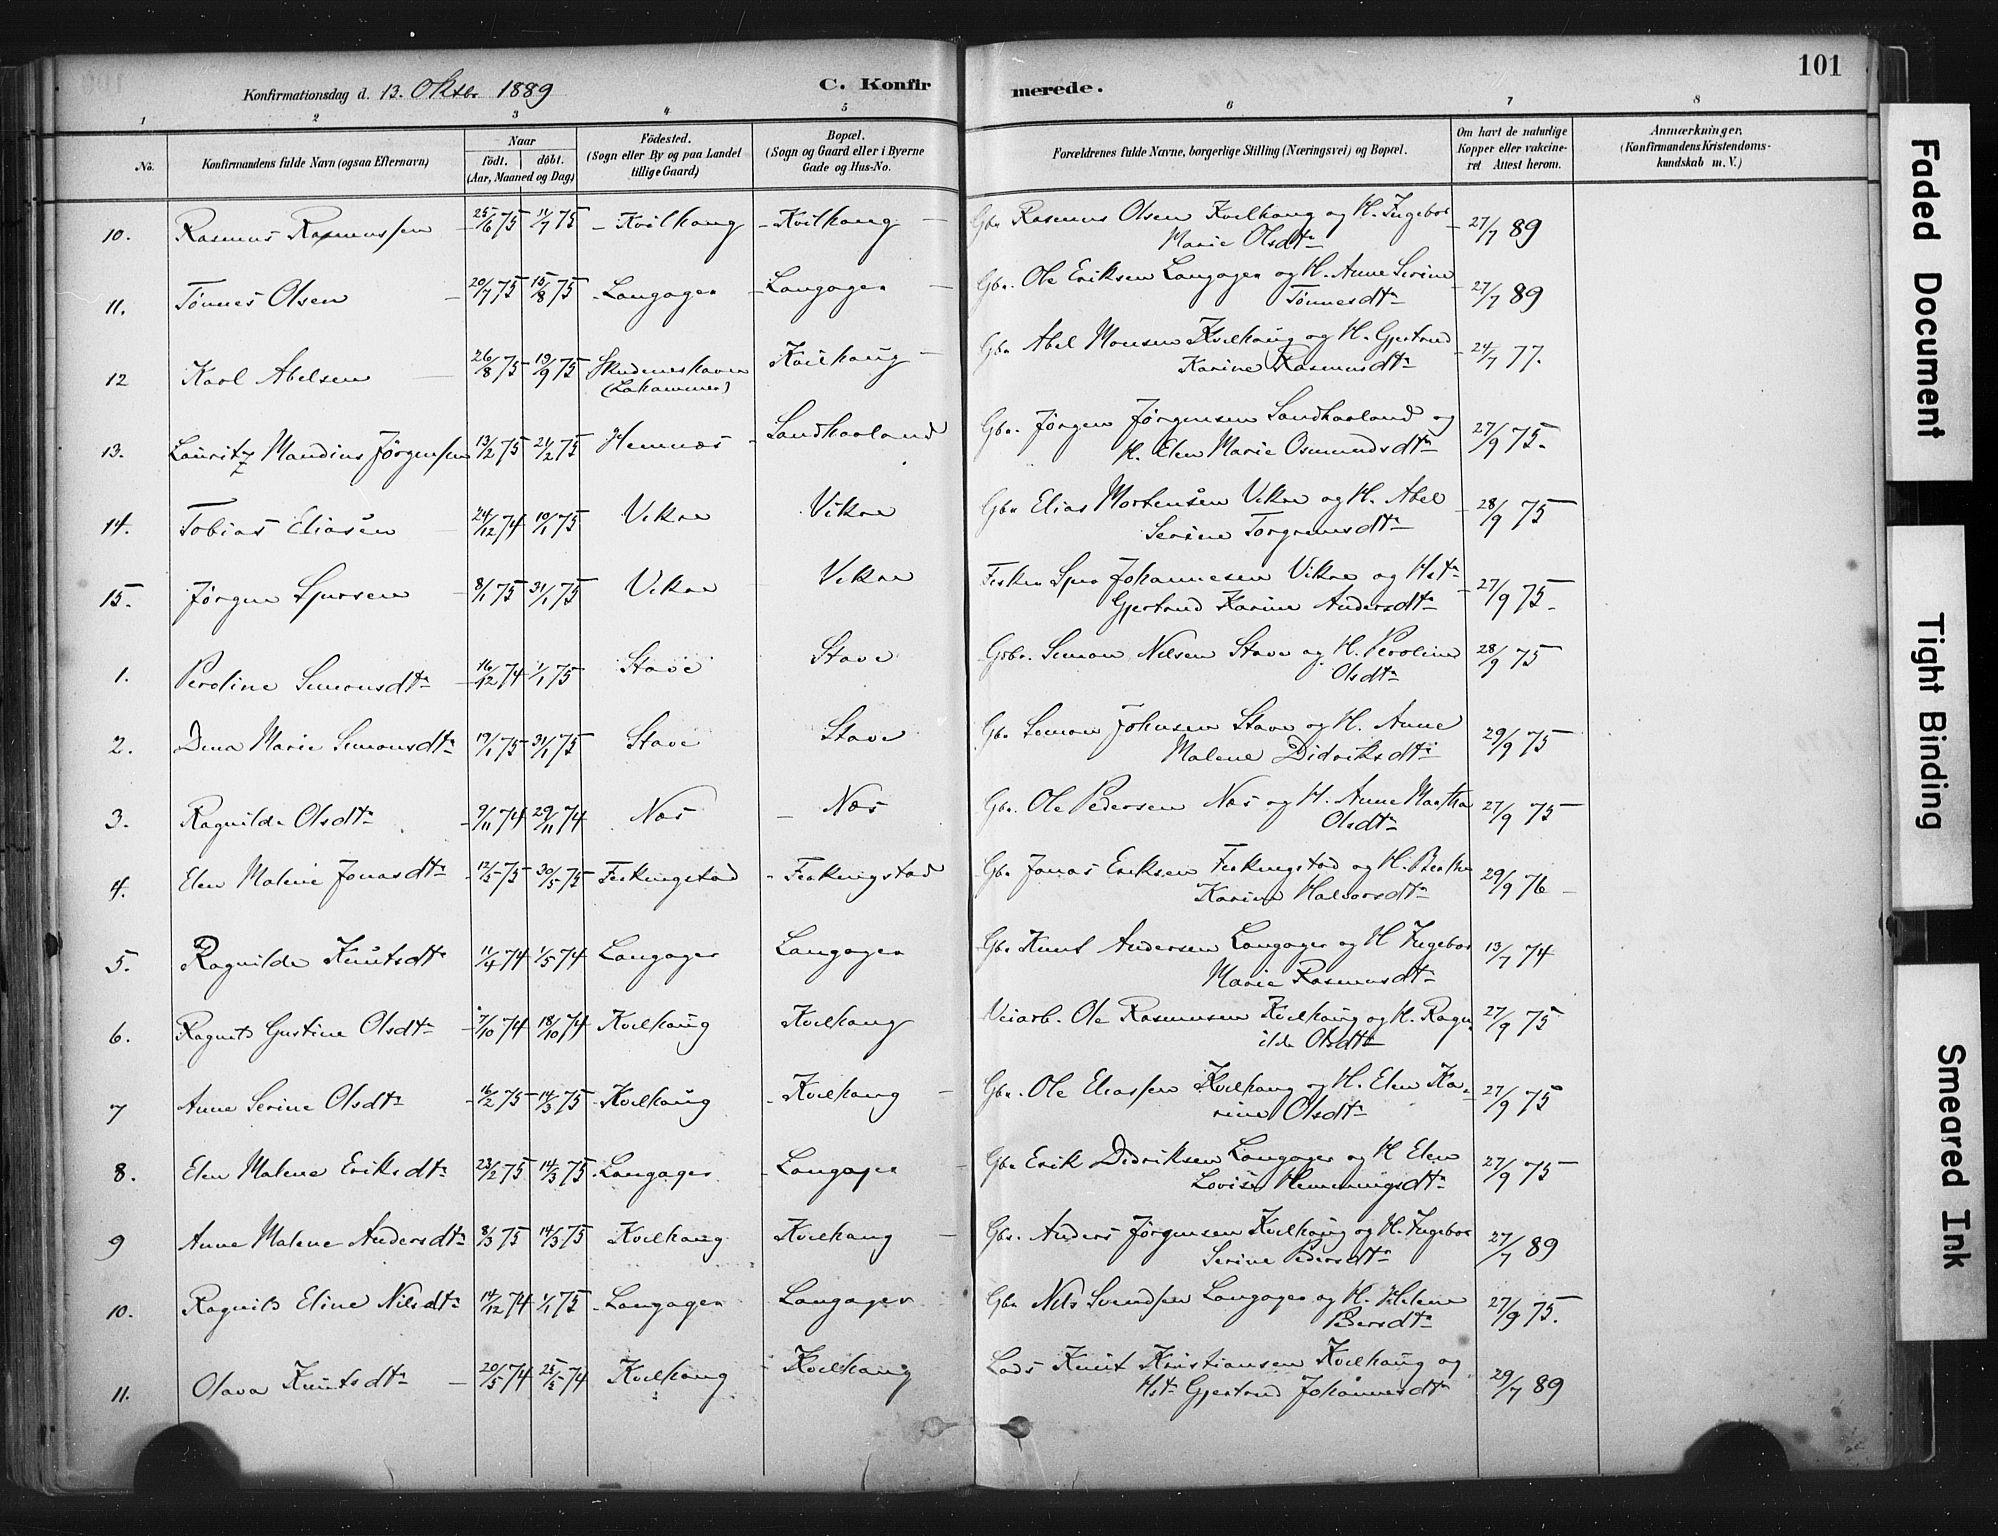 101
Konfirmationsdag d. 13. Oktbr 1889
C. Konfirmerede.
1 2 3 4 5 6 7 8
No. Konfirmandens fulde Navn (ogsaa Efternavn) Naar födt. döbt. (Aar, Maaned og Dag) Födested. (Sogn eller By og paa Landet tillige Gaard) Bopæl. (Sogn og Gaard eller i Byerne Gade og Hus-No. Forældrenes fulde Navne, borgerlige Stilling (Næringsvei) og Bopæl. Om havt de naturlige Kopper eller vaccineret Attest herom. Anmærkninger. (Konfirmandens Kristendomskundskab m. V.)
10. Rasmus Rasmussen 25/6 75 11/7 75 - Kvilhaug - Kvilhaug - Gbr Rasmus Olsen Kvilhaug og H. Ingebor Marie Olsdtr - 27/7 89
11. Tønnes Olsen - 20/7 75 15/8 75 - Langager - Langager - Gbr. Ole Eriksen Langager og H. Anne Serine Tønnesdtr - 27/7 89
12 Karl Abelsen - 26/8 75 19/9 75 Skudeneshavn (Lahammer) Kvilhaug - Gbr Abel Monsen Kvilhaug og H. Gjertrud Karine Rasmusdtr - 24/7 77.
13. Lauritz Mandius Jørgensen 13/2 75 21/2 75 Hemnæs - Sandhaaland Gbr. Jørgen Jørgensen Sandhaaland og H. Elen Marie Osmundsdtr 27/9 75.
14. Tobias Eliasen - 24/12 74 10/1 75 Vikre Vikre Gbr Elias Mortensen Vikre og H. Abel Serine Torgrimsdtr - 28/9 75
15. Jørgen Sjursen - 8/1 75 31/1 75 Vikre Vikre Fisker Sjur Johannesen Vikre og Hstr Gjertrud Karine Andersdtr - 27/9 75.
1. Peroline Simonsdtr - 16/12 74 1/1 75 Stave Stave Gbr. Simon Nilsen Stave og H. Peroline Olsdtr 28/9 75
2. Dina Marie Simonsdtr 19/1 75 31/1 75 Stave Stave Gbr Simon Johnsen Stave og H. Anne Malene Didriksdtr 29/9 75
3. Ragnilda Olsdtr - 9/11 74 29/11 74 Nes - Nes Gbr. Ole Pedersen Nes og H. Anne Martha Olsdtr 27/9 75
4. Elen Malene Jonasdtr - 12/5 75 30/5 75 Ferkingstad - Ferkingstad Gbr Jonas Eriksen Ferkingstad og H. Berthe Karine Halvorsdtr 29/9 76 -
5. Ragnilda Knutsdtr 11/4 74 1/5 74 Langager Langager Gbr Knut Andersen Langager og H Ingebor Marie Rasmusdtr 13/7 74
6. Ragnild Gustine Olsdtr - 7/10 74 18/10 74 Kvilhaug Kvilhaug Veiarb. Ole Rasmussen Kvilhaug og H. Ragnilda Olsdtr 27/9 75
7 Anne Serine Olsdtr - 16/2 75 14/3 75 Kvilhaug - Kvilhaug - Gbr. Ole Eliassen Kvilhaug og H. Elen Karine Olsdtr 27/9 75
8. Elen Malene Eriksdtr 23/2 75 14/3 75 Langager - Langager - Gbr Erik Didriksen Langager og H Elen Lovise Hemmingsdtr 27/9 75
9 Anne Malene Andersdtr 8/3 75 14/3 75 Kvilhaug Kvilhaug - Gbr. Anders Jørgensen Kvilhaug og H. Ingebor Serine Pedersdtr 27/7 89
10. Ragnild Eline Nilsdtr 14/12 74 1/1 75 - Langager Langager Gbr Nils Svendsen Langager og H. Helene Bersdtr 27/9 75.
11. Olava Knutsdtr - 20/5 74 25/5 74 Kvilhaug - Kvilhaug Lods Knut Kristiansen Kvilhaug og Hstr Gjertrud Johannesdtr 29/7 89
Faded Document
Tight Binding
Smeared Ink